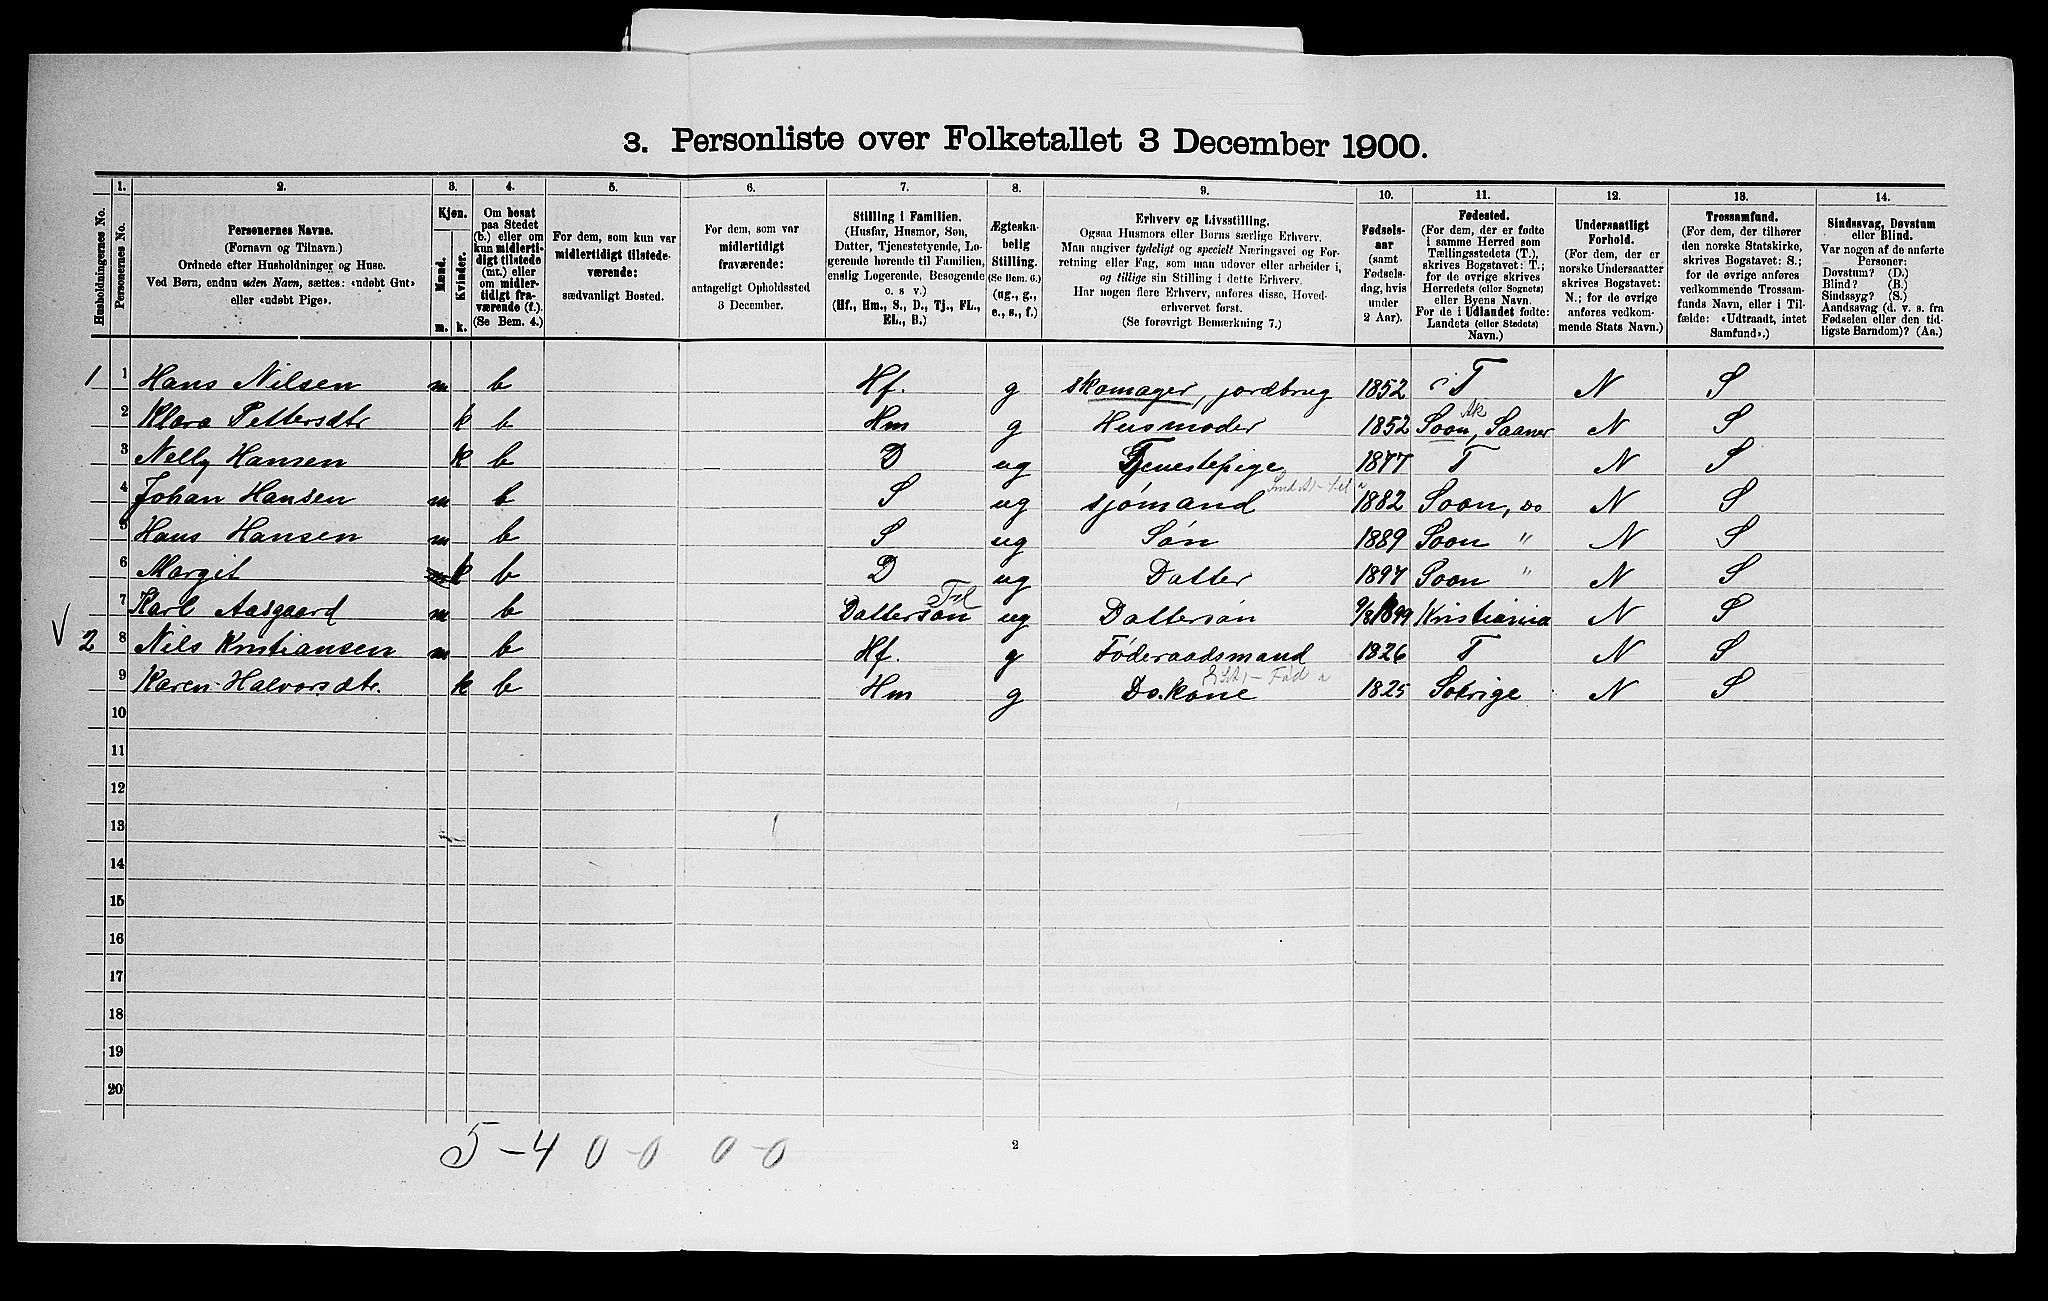 3. Personliste over Folketallet 3 December 1900.
1. 2. 3. 4. 5. 6. 7. 8. 9. 10. 11. 12. 13. 14.
Husholdningernes No.
Personernes No.
Personernes Navne.
(Fornavn og Tilnavn.)
Ordnede efter Husholdninger og Huse.
Ved Børn, endnu uden Navn, sættes: «udøbt Gut»
eller «udøbt Pige».
Kjøn.
Mænd.
Kvinder.
m. k.
Om bosat
paa Stedet
(b.) eller om
kun midlerti-
digt tilstede
(mt.) eller
om midler-
tidigt fra-
værende (f.)
(Se Bem. 4.)
For dem, som kun var
midlertidigt tilstede-
værende:
sædvanligt Bosted.
For dem, som var
midlertidigt
fraværende:
antageligt Opholdssted
3 December.
Stilling i Familien.
(Husfar, Husmor, Søn,
Datter, Tjenestetyende, Lo-
gerende hørende til Familien,
enslig Logerende, Besøgende
o. s v.)
(Hf., Hm., S., D., Tj., FL.,
EL., B.)
Ægteska-
belig
Stilling.
(Se Bem. 6.)
(ug., g.,
e., s., f.)
Erhverv og Livsstilling.
Ogsaa Husmors eller Børns særlige Erhverv.
Man angiver tydeligt og specielt Næringsvei og For-
retning eller Fag, som man udøver eller arbeider i,
og tillige sin Stilling i dette Erhverv.
Har nogen flere Erhverv, anføres disse, Hoved-
erhvervet først.
(Se forøvrigt Bemærkning 7.)
Fødsels-
aar
(samt
Fødsels-
dag, hvis
under
2 Aar).
Fødested.
(For dem, der er fødte
i samme Herred som
Tællingsstedets (T.),
skrives Bogstavet: T.;
for de øvrige skrives
Herredets (eller Sognets)
eller Byens Navn.
For de i Udlandet fødte:
Landets (eller Stedets)
Navn.)
Undersaatligt
Forhold.
(For dem, der er
norske Undersaatter
skrives Bogstavet:
N.; for de øvrige
anføres vedkom-
mende Stats Navn.)
Trossamfund.
(For dem, der tilhører
den norske Statskirke,
skrives Bogstavet: S.;
for de øvrige anføres
vedkommende Trossam-
funds Navn, eller i Til-
fælde: «Udtraadt, intet
Samfund».)
Sindssvag, Døvstum
eller Blind.
Var nogen af de anførte
Personer:
Døvstum? (D.)
Blind? (B.)
Sindssyg? (S.)
Aandssvag (d. v. s. fra
Fødselen eller den tid-
ligste Barndom)? (Aa.)
1 1 Hans Nilsen m b Hf. g skomager, jordbrug 1852 T N S
Ak
2 Klara Pettersdtr k b Hm g Husmoder 1852 Soon, Saaner N S
3 Nelly Hansen k b D ug Tjenestepige 1877 T N S
4 Johan Hansen m b S ug sjömand 1882 Soon, do N S
5 Hans Hansen m b S ug Søn 1889 Soon " N S
6 Margit m k b D ug Datter 1897 Soon " N S
7 Karl Aasgaard m b Dattersøn ug Dattersøn 9/8 1899 Kristiania N S
V 2 8 Nils Kristiansen m b Hf. g Føderaadsmand 1826 T N S
9 Karen Halvorsdtr. k b Hm g Do. kone 1825 Sverige N S
10
11
12
13
14
15
16
17
18
19
20
5 – 4 0 – 0 0 – 0
2